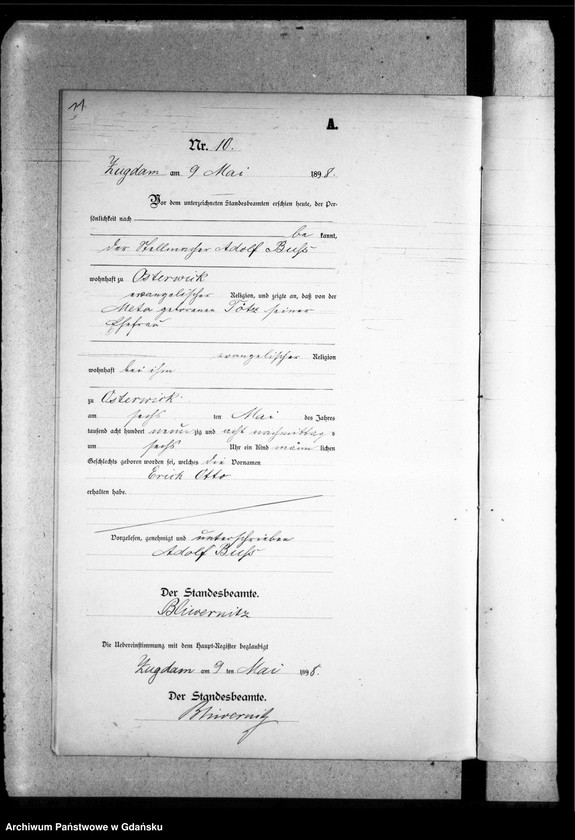 A.
Nr. 10.
Zugdam am 9 Mai 1898.
Vor dem unterzeichneten Standesbeamten erschien heute, der Per-
sönlichkeit nach
be kannt,
der Stellmacher Adolf Buss
wohnhaft zu Osterwick
evangelischer Religion, und zeigte an, daß von der
Meta geborenen Tötz seiner
Ehefrau
evangelischer Religion
wohnhaft bei ihm
zu Osterwick
am sechs ten Mai des Jahres
tausend acht hundert neun zig und acht nachmittag s
um sechs Uhr ein Kind männ lichen
Geschlechts geboren worden sei, welches die Vornamen
Erich Otto
erhalten habe.
Vorgelesen, genehmigt und unterschrieben
Adolf Buss
Der Standesbeamte.
Bliwernitz
Die Uebereinstimmung mit dem Haupt-Register beglaubigt
Zugdam am 9 ten Mai 1898.
Der Standesbeamte.
Bliwernitz
Archiwum Państwowe w Gdańsku